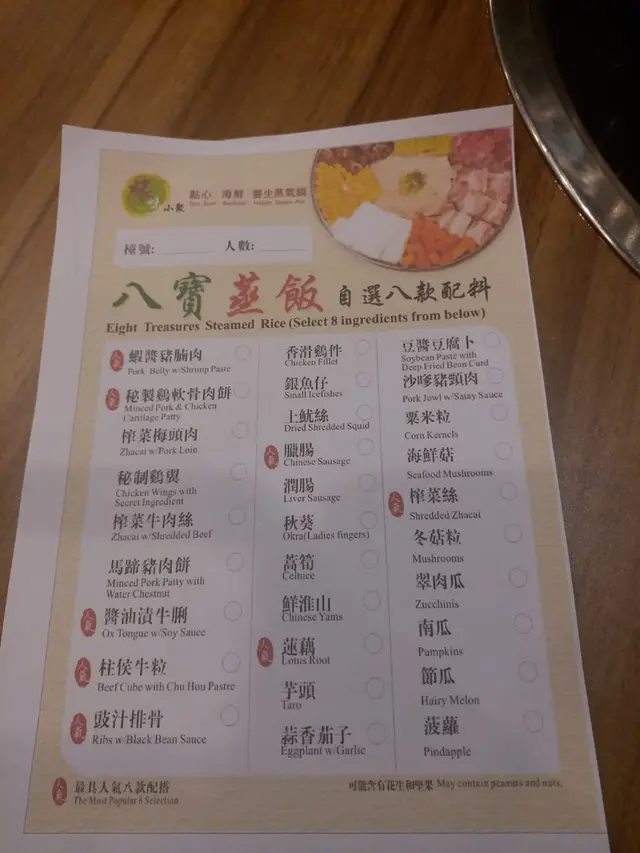 小聚
點心 海鮮 養生蒸氣鍋
Dim Sum Seafood Health Steam Pot
檯號:
人數:
八寶蒸飯 自選八款配料
Eight Treasures Steamed Rice (Select 8 ingredients from below)
人氣 蝦醬豬腩肉
Pork Belly w/Shrimp Paste
人氣 秘製鷄軟骨肉餅
Minced Pork & Chicken
Cartilage Patty
榨菜梅頭肉
Zhacai w/Pork Loin
秘制鷄翼
Chicken Wings with
Secret Ingredient
榨菜牛肉絲
Zhacai w/Shredded Beef
馬蹄豬肉餅
Minced Pork Patty with
Water Chestnut
人氣 醬油漬牛脷
Ox Tongue w/Soy Sauce
人氣 柱侯牛粒
Beef Cube with Chu Hou Pastre
人氣 豉汁排骨
Ribs w/Black Bean Sauce
香滑鷄件
Chicken Fillet
銀魚仔
Small Icefishes
土魷絲
Dried Shredded Squid
人氣 臘腸
Chinese Sausage
潤腸
Liver Sausage
秋葵
Okra(Ladies fingers)
萵筍
Celtuce
鮮淮山
Chinese Yams
人氣 蓮藕
Lotus Root
芋頭
Taro
蒜香茄子
Eggplant w/Garlic
豆醬豆腐卜
Soybean Paste with
Deep Fried Bean Curd
沙嗲豬頸肉
Pork Jowl w/Satay Sauce
粟米粒
Corn Kernels
海鮮菇
Seafood Mushrooms
人氣 榨菜絲
Shredded Zhacai
冬菇粒
Mushrooms
翠肉瓜
Zucchinis
南瓜
Pumpkins
節瓜
Hairy Melon
菠蘿
Pindapple
人氣 最具人氣八款配搭
The Most Popular 8 Selection
可能含有花生和堅果 May contain peanuts and nuts.